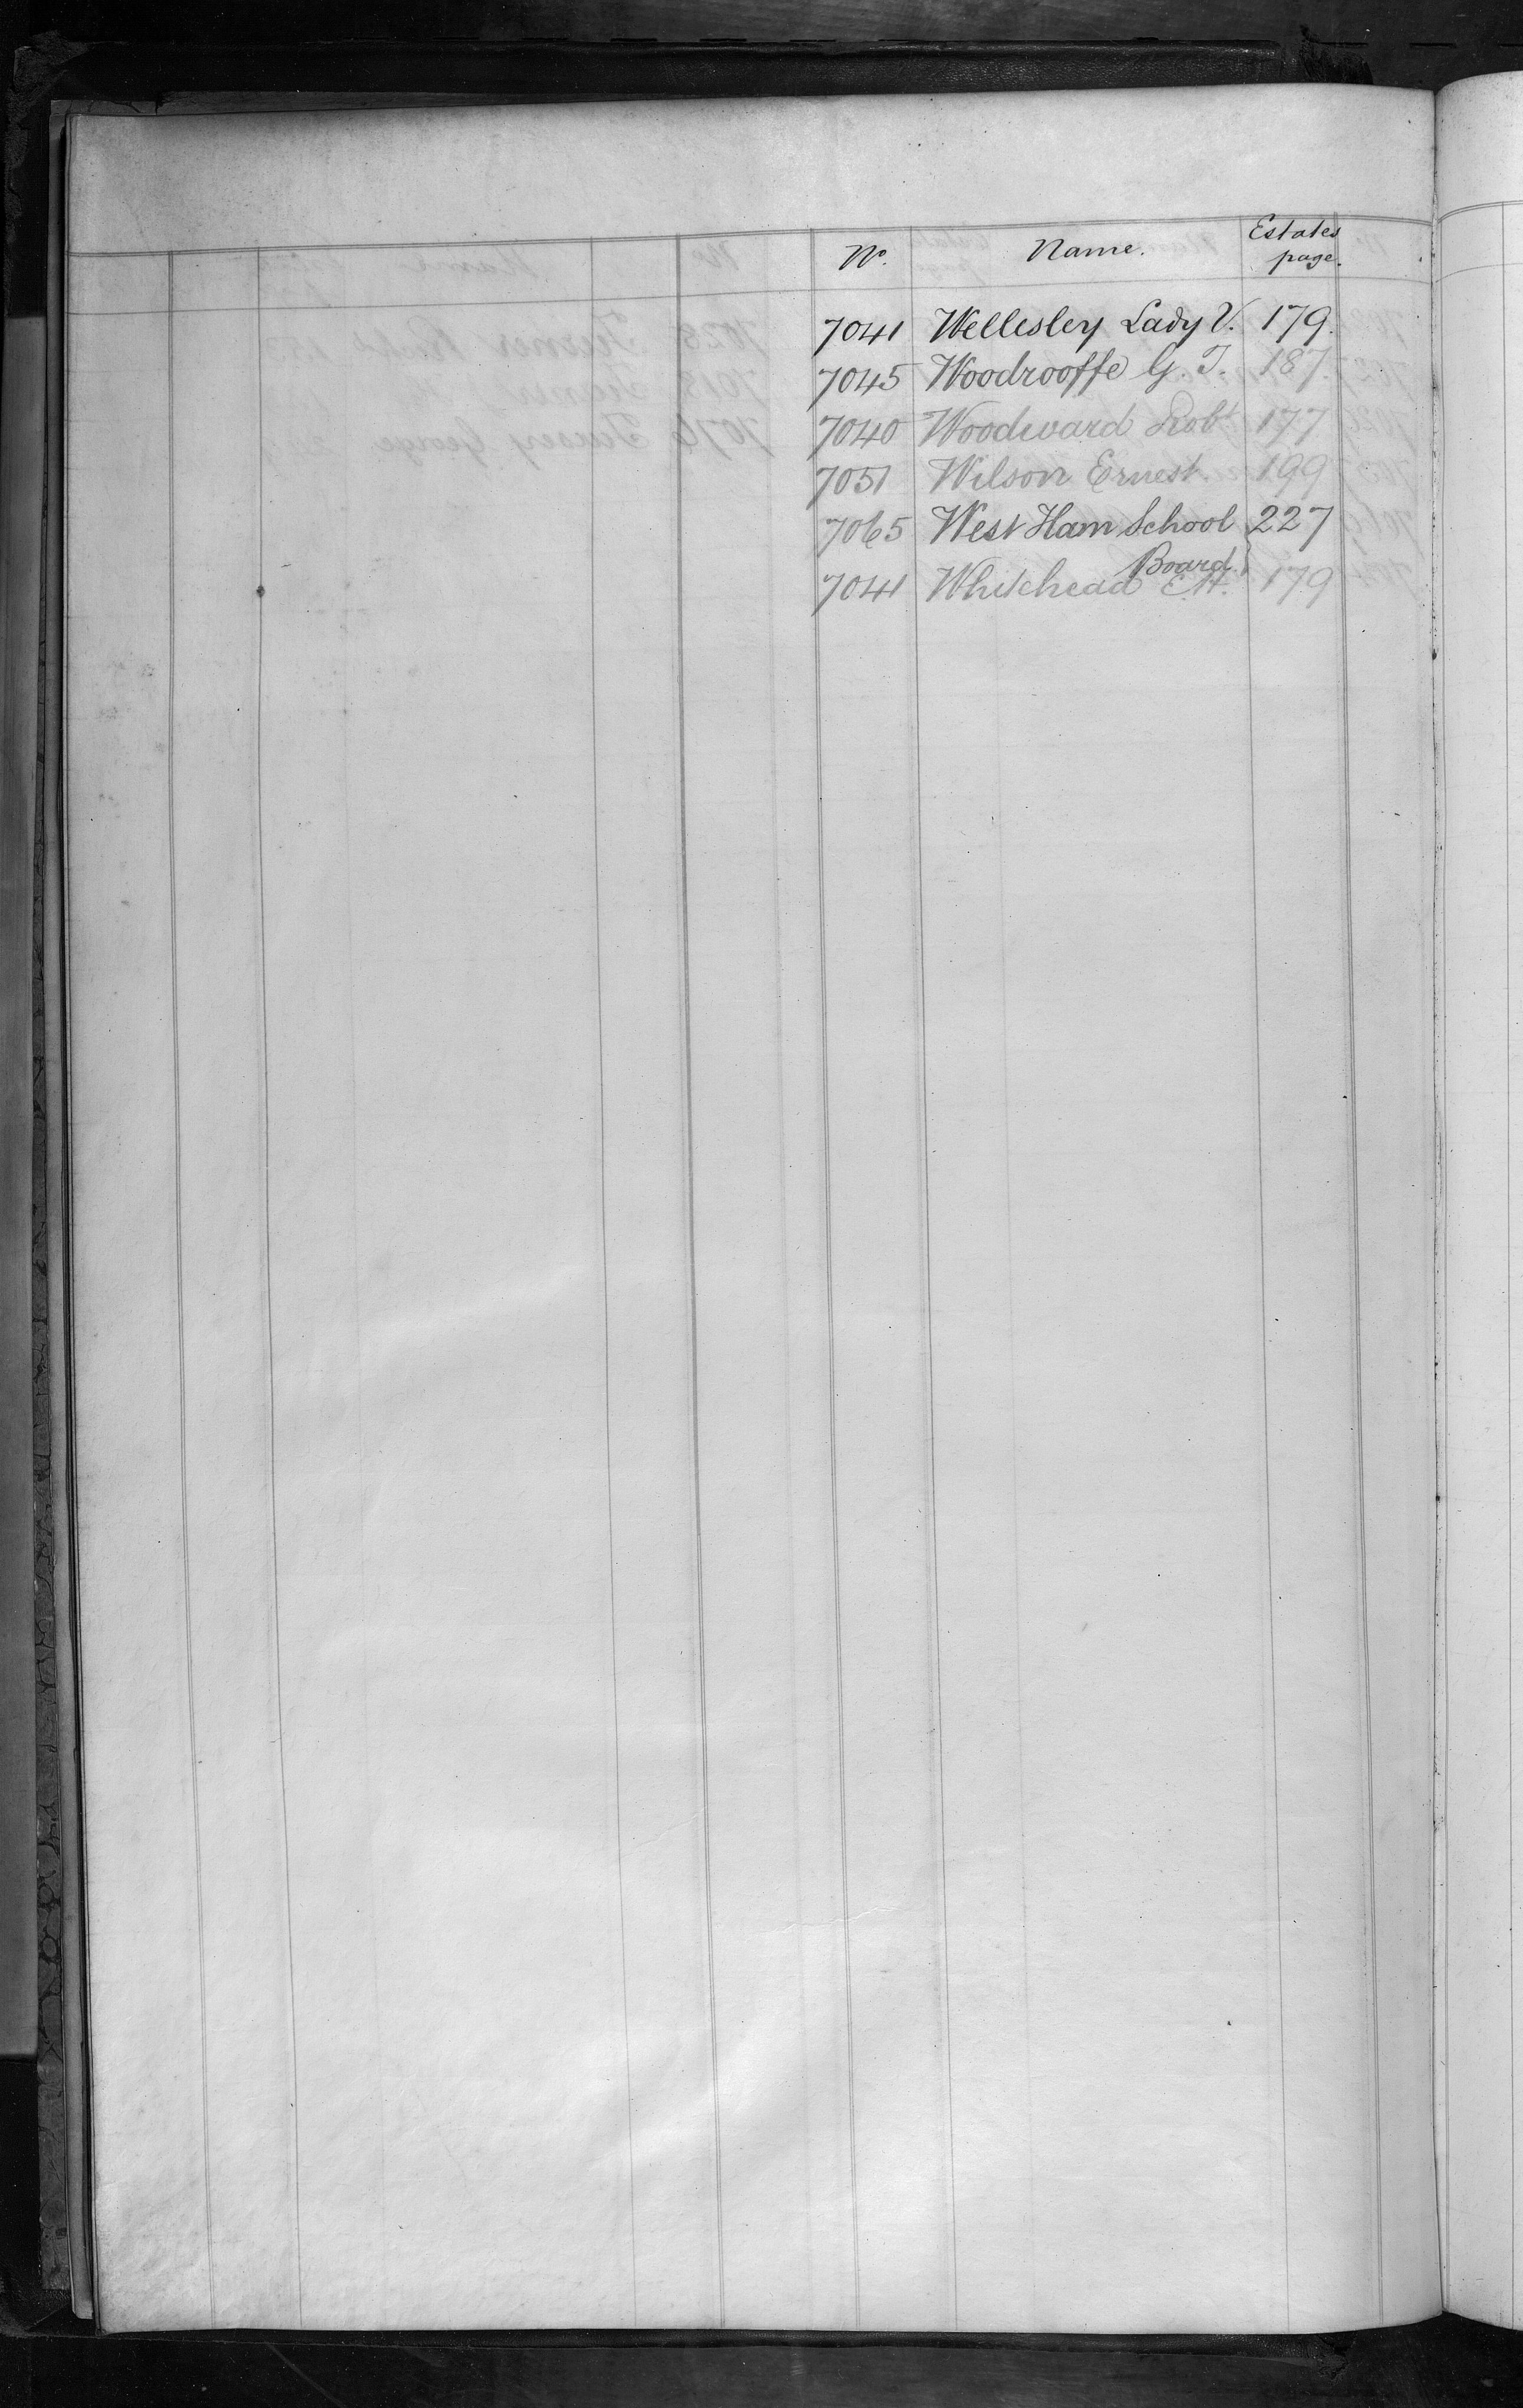 No. Name. Estates page.
7041 Wellesley Lady V. 179.
7045 Woodrooffe G. T. 187.
7040 Woodward Robt 177
7051 Wilson Ernest. 199
7065 West Ham School 227
Board.
7041 Whitehead E. H. 179